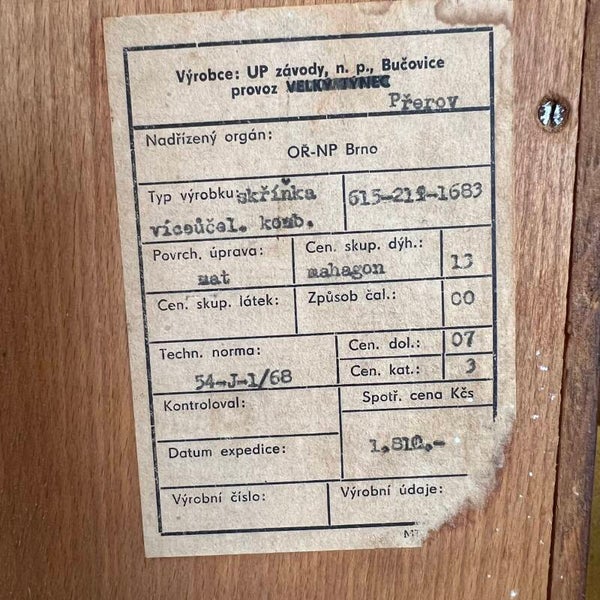 Výrobce: UP závody, n. p., Bučovice
provoz VELKÝ TÝNEC
Přerov
Nadřízený orgán:
OŘ-NP Brno
Typ výrobku: skříňka 615-211-1683
víceúčel. komb.
Povrch. úprava: Cen. skup. dýh.: 13
mat mahagon
Cen. skup. látek: Způsob čal.: 00
Techn. norma: Cen. dol.: 07
54-J-1/68 Cen. kat.: 3
Kontroloval: Spotř. cena Kčs
Datum expedice: 1,810,-
Výrobní číslo: Výrobní údaje: